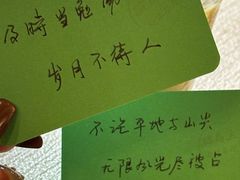 及時当勉励
岁月不待人
不论平地与山尖
无限风光尽被占